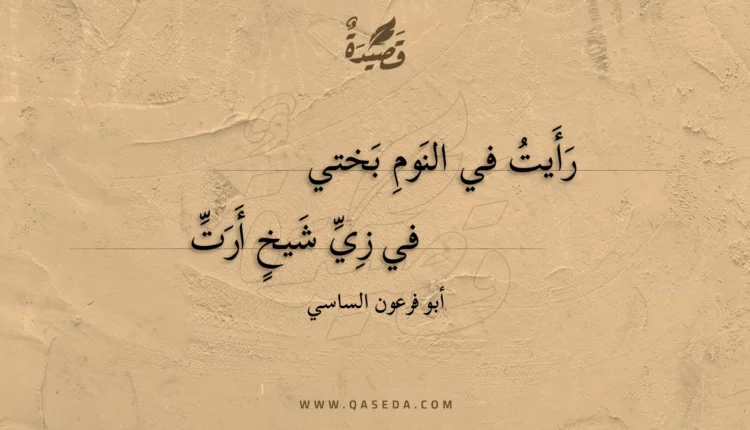 قَصِيدَةٌ
رَأَيتُ في النَومِ بَختي
في زِيِّ شَيخٍ أَرَتِّ
أبو فرعون الساسي
WWW.QASEDA.COM